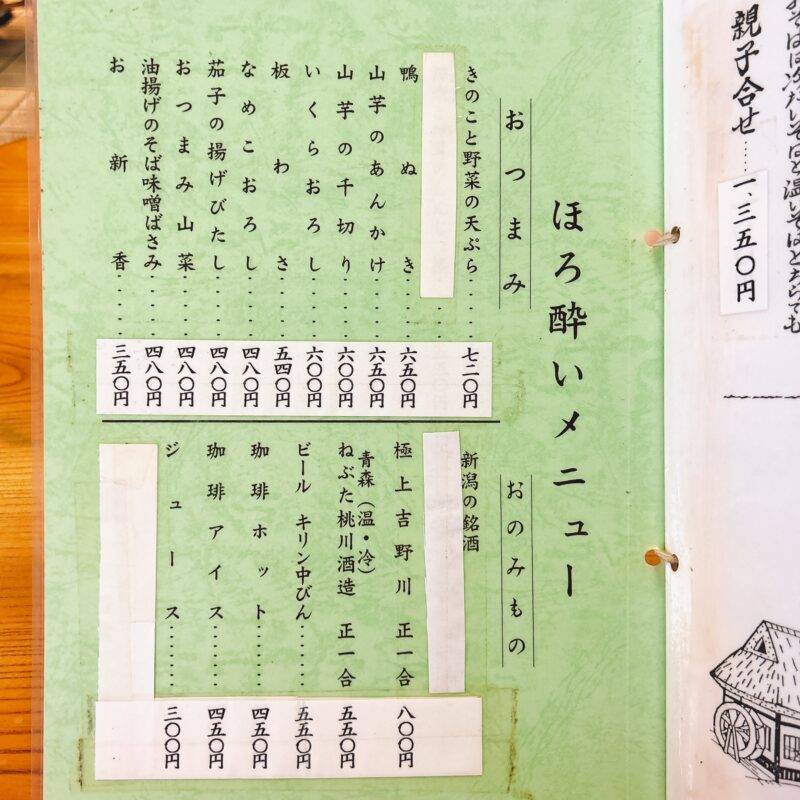 おそばは冷たいそばと温いそばとちらでも
親子合せ‥‥一、三五〇円
ほろ酔いメニュー
おつまみ
きのこと野菜の天ぷら‥‥七二〇円
鴨ぬき‥‥六五〇円
山芋のあんかけ‥‥六五〇円
山芋の千切り‥‥六〇〇円
いくらおろし‥‥六〇〇円
板わさ‥‥五四〇円
なめこおろし‥‥四八〇円
茄子の揚げびたし‥‥四八〇円
おつまみ山菜‥‥四八〇円
油揚げのそば味噌ばさみ‥‥四八〇円
お新香‥‥三五〇円
おのみもの
新潟の銘酒
極上吉野川 正一合 八〇〇円
青森(温・冷)
ねぶた桃川酒造 正一合 五五〇円
ビール キリン中びん‥‥五五〇円
珈琲ホット‥‥四五〇円
珈琲アイス‥‥四五〇円
ジュース‥‥三〇〇円